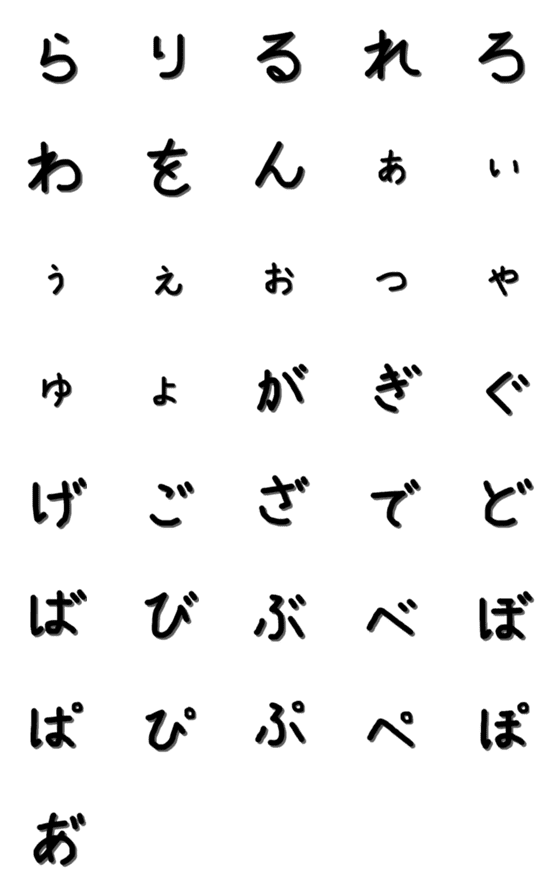 らりるれろ
わをんぁぃ
ぅぇぉっゃ
ゅょがぎぐ
げござでど
ばびぶべぼ
ぱぴぷぺぽ
あ゙